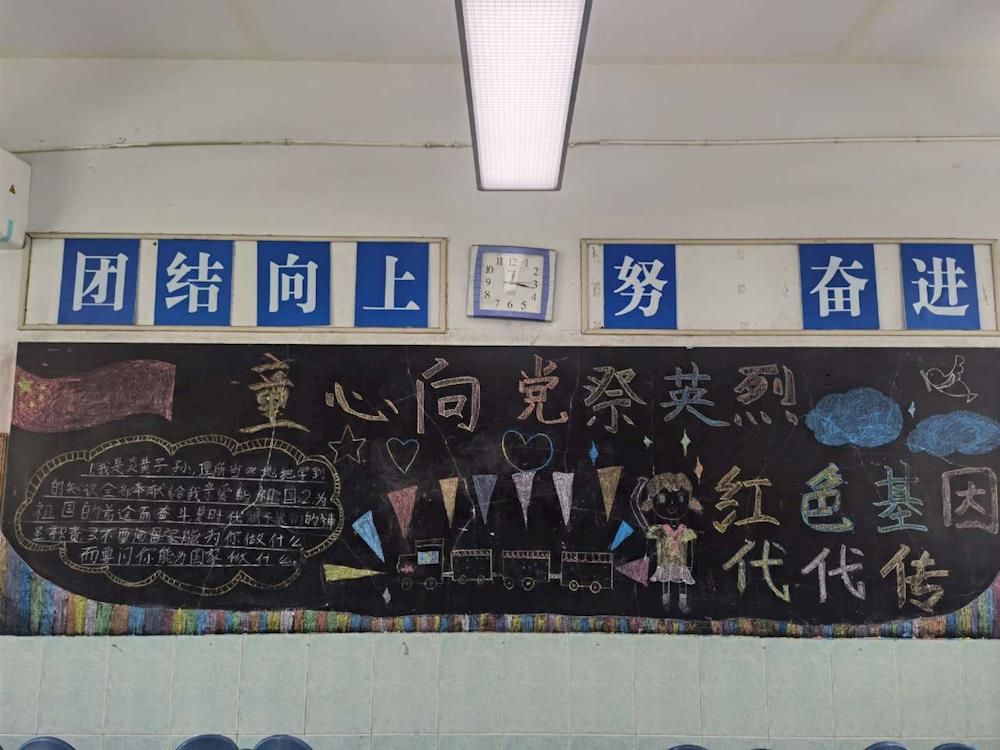 团结向上
12
11 1
10 2
9 3
8 4
7 6 5
努 奋进
童心向党祭英烈
1我是炎黄子孙,理所当然地把学到
的知识全部奉献给我亲爱的祖国2为
祖国的前途而奋斗是时代的神
圣职责3不要问国家能为你做什么
而要问你能为国家做什么。
红色基因
代代传